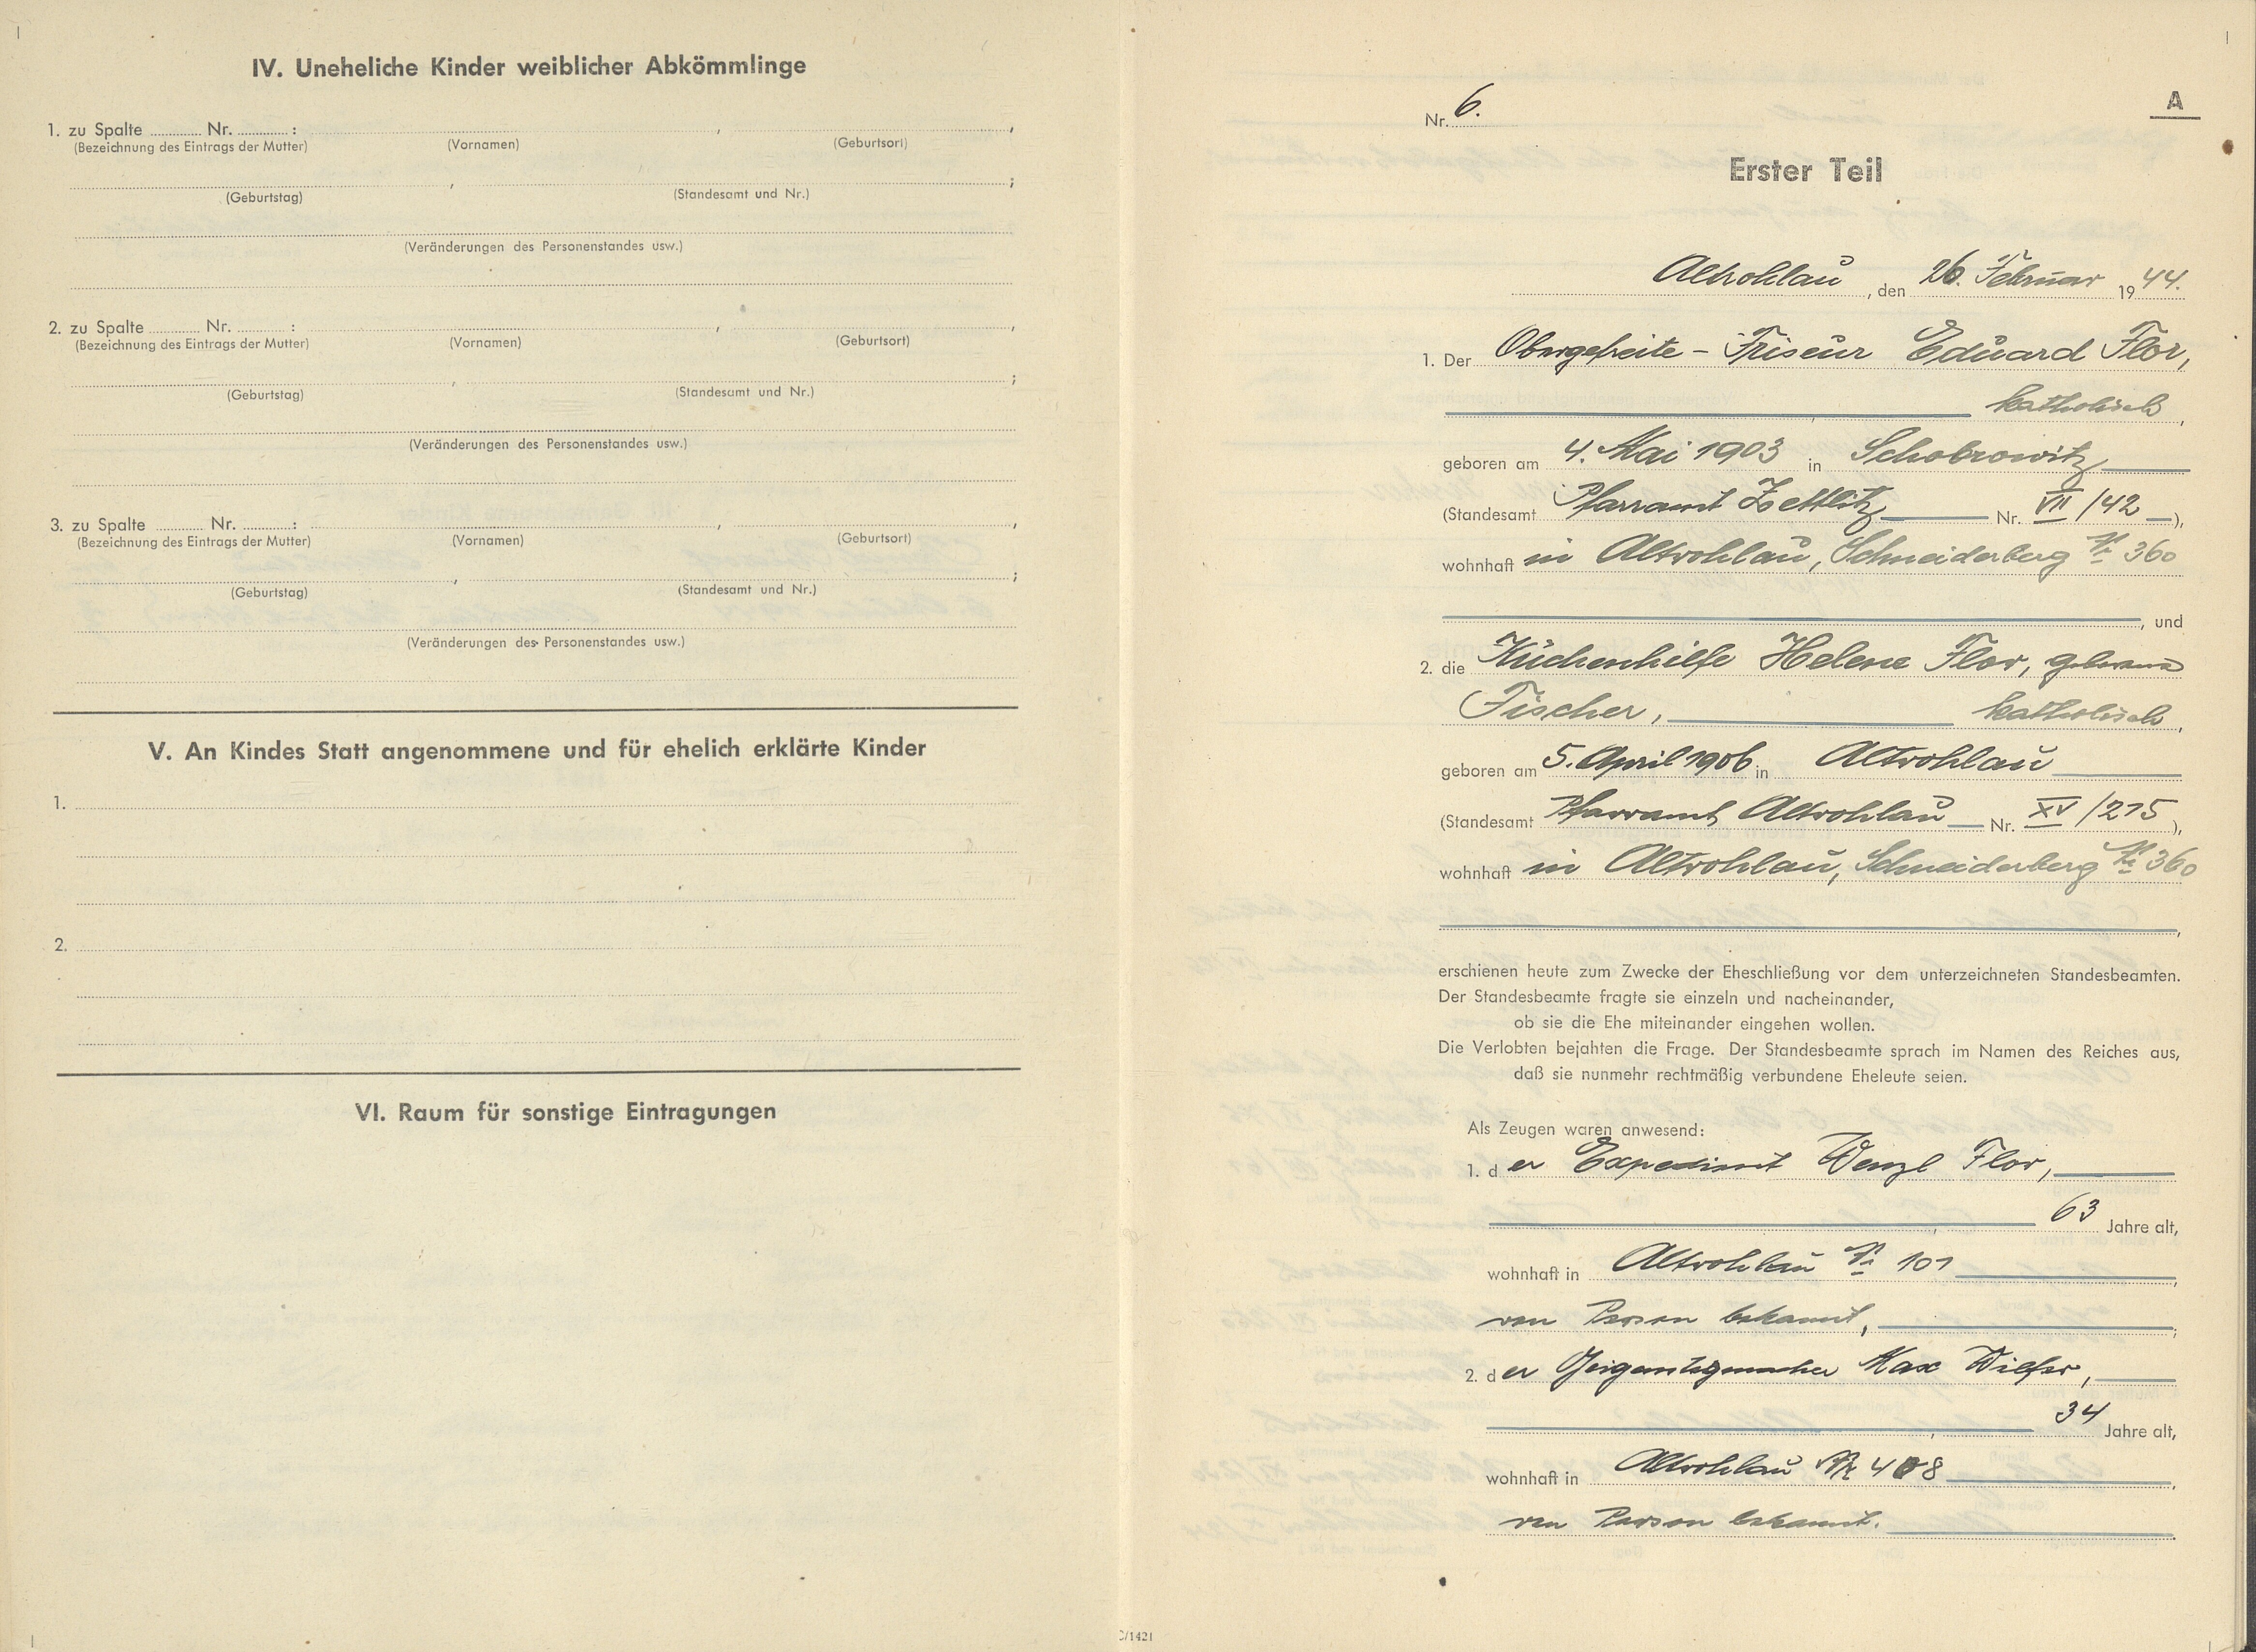 IV. Uneheliche Kinder weiblicher Abkömmlinge
1. zu Spalte ............ Nr. ............ : , ,
(Bezeichnung des Eintrags der Mutter) (Vornamen) (Geburtsort)
, ;
(Geburtstag) (Standesamt und Nr.)
(Veränderungen des Personenstandes usw.)
2. zu Spalte ............ Nr. ............ : , ,
(Bezeichnung des Eintrags der Mutter) (Vornamen) (Geburtsort)
, ;
(Geburtstag) (Standesamt und Nr.)
(Veränderungen des Personenstandes usw.)
3. zu Spalte ............ Nr. ............ : , ,
(Bezeichnung des Eintrags der Mutter) (Vornamen) (Geburtsort)
, ;
(Geburtstag) (Standesamt und Nr.)
(Veränderungen des Personenstandes usw.)
V. An Kindes Statt angenommene und für ehelich erklärte Kinder
1.
2.
VI. Raum für sonstige Eintragungen
A
Nr. 6.
Erster Teil
Altrohlau, den 26. Februar 1944.
1. Der Obergefreite - Friseur Eduard Flor,
katholisch,
geboren am 4. Mai 1903 in Schobrowitz
(Standesamt Pfarramt Zettlitz Nr. VII/42),
wohnhaft in Altrohlau, Schneiderberg Nr 360
, und
2. die Küchenhilfe Helene Flor, geborene
Fischer, katholisch,
geboren am 5. April 1906 in Altrohlau
(Standesamt Pfarramt Altrohlau Nr. XV/215),
wohnhaft in Altrohlau, Schneiderberg Nr 360
,
erschienen heute zum Zwecke der Eheschließung vor dem unterzeichneten Standesbeamten.
Der Standesbeamte fragte sie einzeln und nacheinander,
ob sie die Ehe miteinander eingehen wollen.
Die Verlobten bejahten die Frage. Der Standesbeamte sprach im Namen des Reiches aus,
daß sie nunmehr rechtmäßig verbundene Eheleute seien.
Als Zeugen waren anwesend:
1. der Expedient Wenzl Flor,
63 Jahre alt,
wohnhaft in Altrohlau Nr 101,
von Person bekannt,;
2. der Max Wilfer,
34 Jahre alt,
wohnhaft in Altrohlau Nr 408,
von Person bekannt.
C/1421